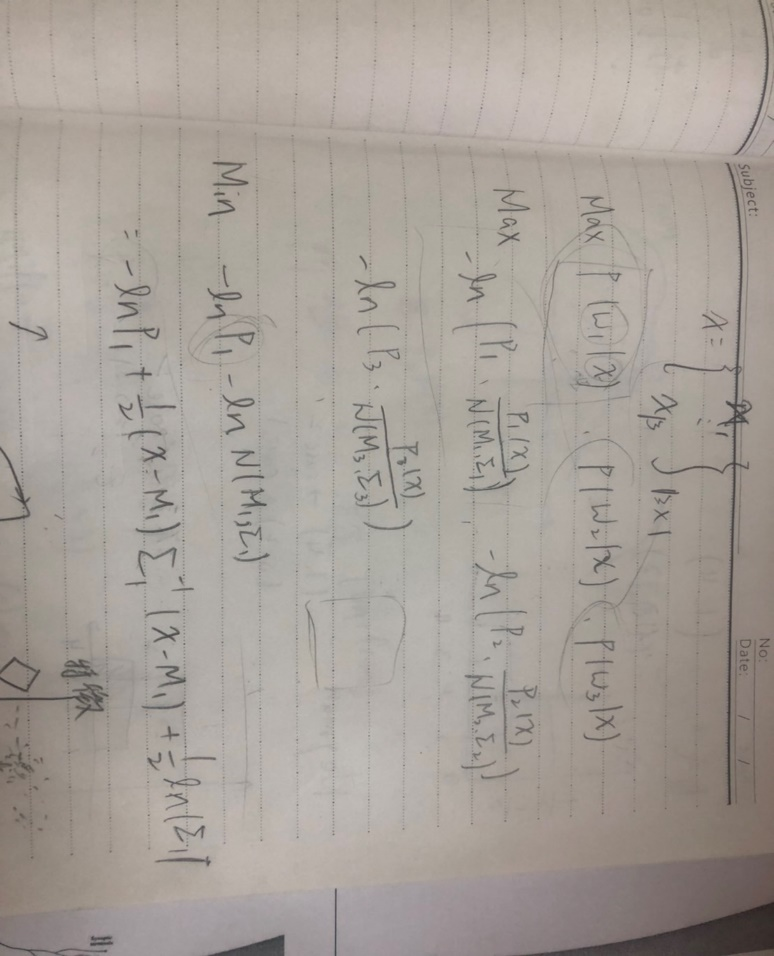 Subject:
No:
Date: / /
x = { x₁ ⋮ x₁₃ } 13×1
Max P(w₁|x), P(w₂|x), P(w₃|x)
Max -ln(P₁ · P₁(x)/N(M₁,Σ₁)) -ln(P₂ · P₂(x)/N(M₂,Σ₂))
-ln(P₃ · P₃(x)/N(M₃,Σ₃))
Min -ln P₁ - ln N(M₁,Σ₁)
= -ln P₁ + 1/2 (x-M₁) Σ₁⁻¹ (x-M₁) + 1/2 ln|Σ₁|
特徵